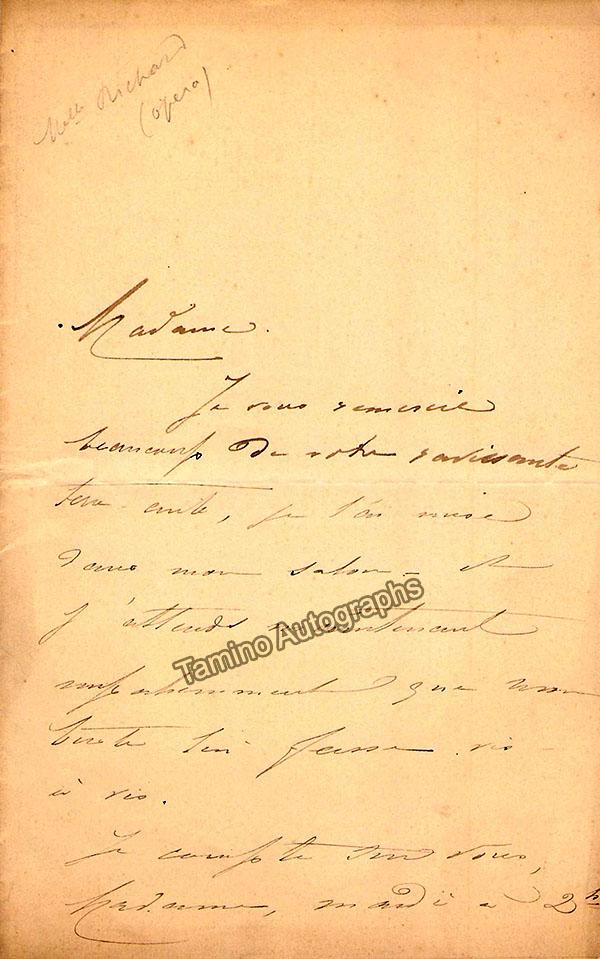 Melle Richard
(opera)
Madame.
Je vous remercie
beaucoup de votre ravissante
terre cuite, je l'ai mise
dans mon salon - et
j'attends maintenant
impatiemment que mon
buste lui fasse vis
à vis.
Je compte sur vous,
Madame, mardi à 2h
Tamino Autographs